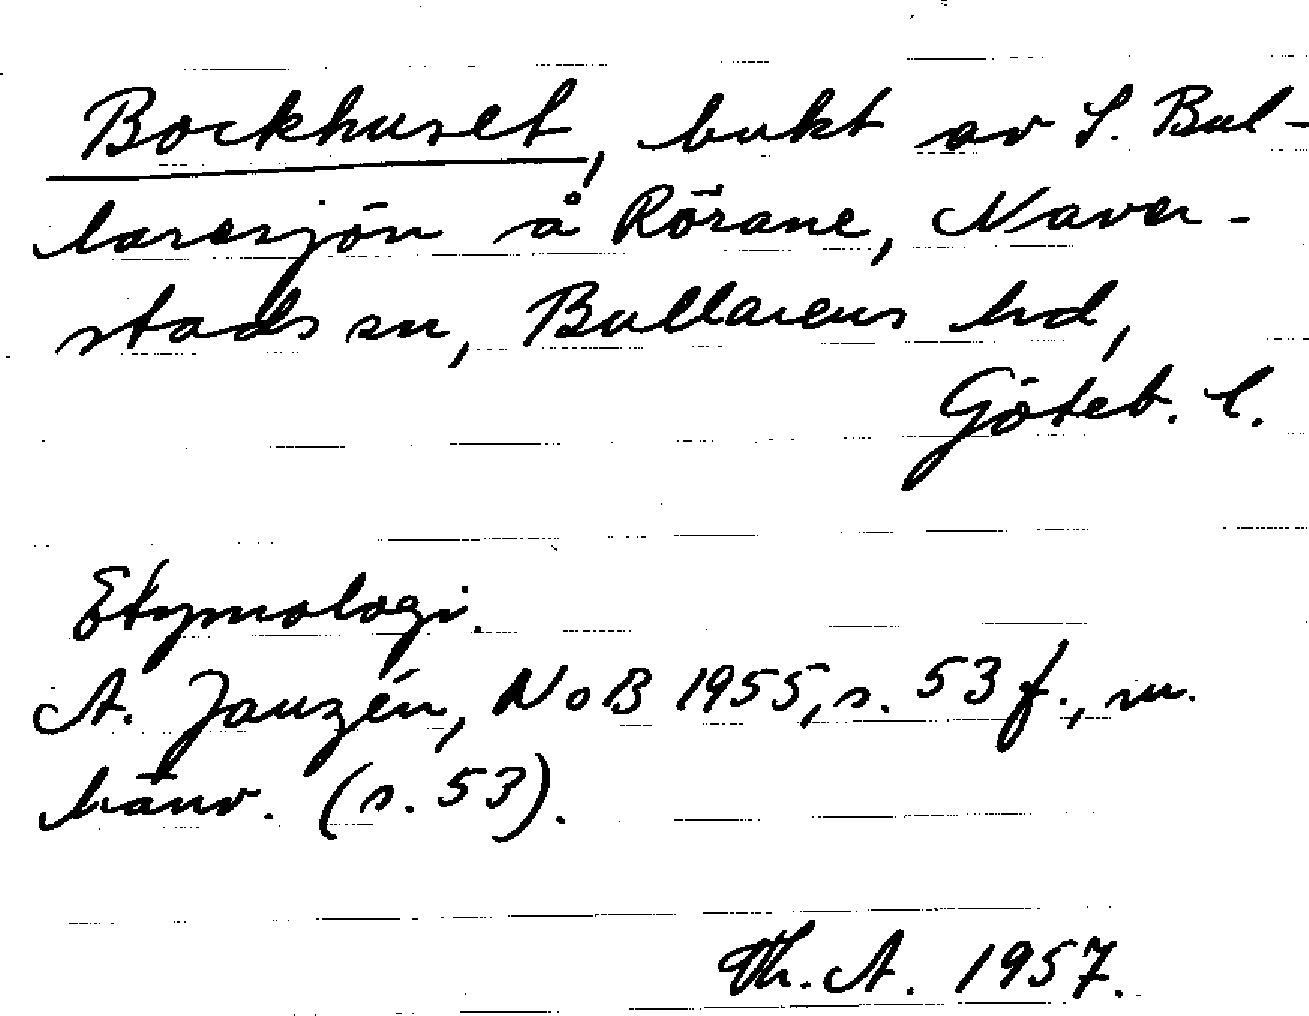 Bockhuset, bukt av S. Bul-
laresjön å Rörane, Naver-
stads sn, Bullarens hd,
Göteb. l.
Etymologi.
A. Janzén, NoB 1955, s. 53 f., m.
hänv. (s. 53).
Th. A. 1957.